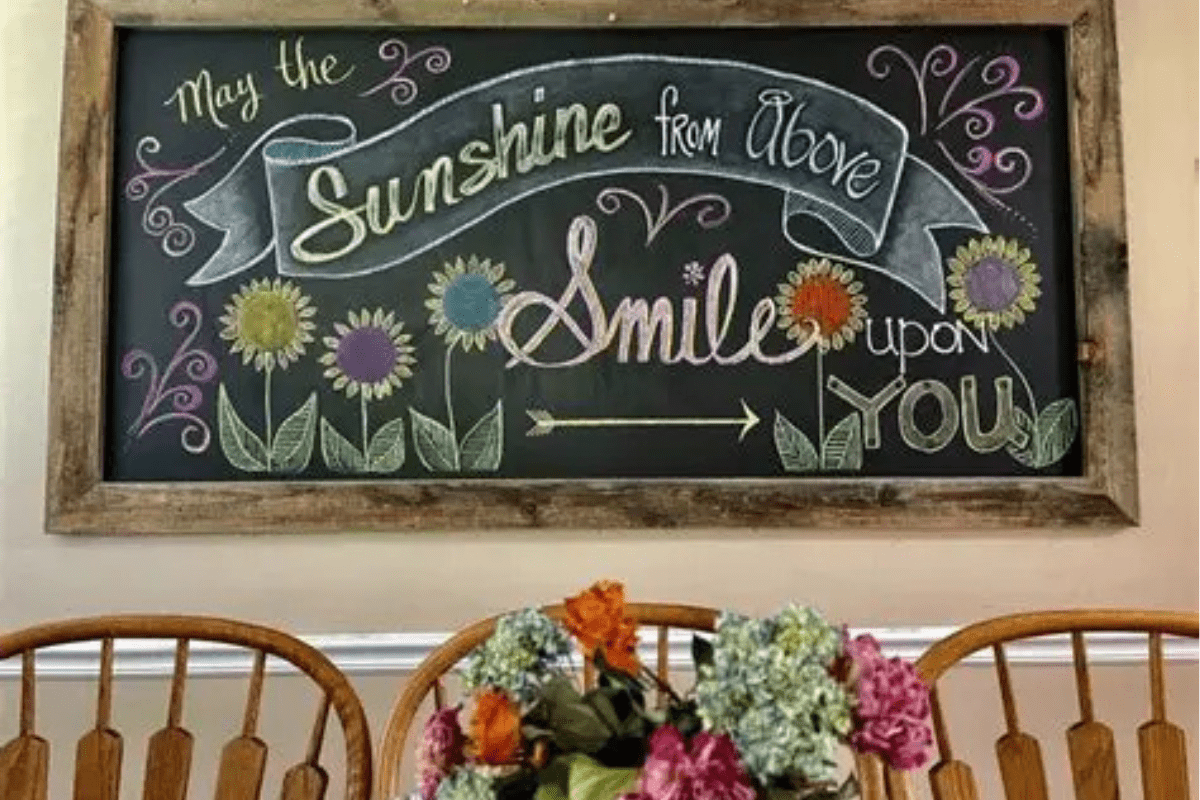 May the
Sunshine from Above
Smile upon
YOU